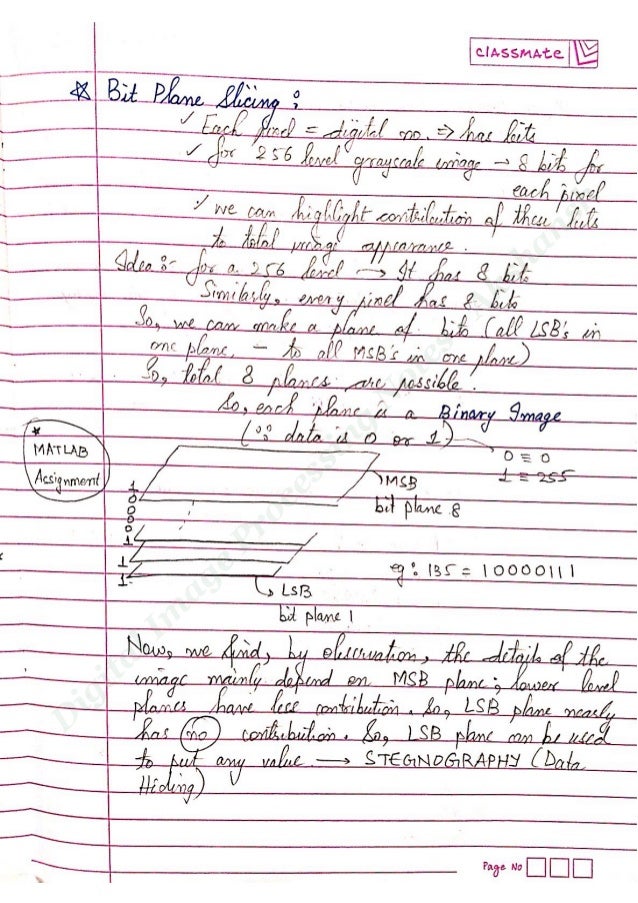 classmate
☆ Bit Plane Slicing :
✓ Each pixel = digital no. ⇒ has bits
✓ for 256 level grayscale image → 8 bits for
each pixel
✓ we can highlight contribution of these bits
to total image appearance.
Idea :- for a 256 level → It has 8 bits
Similarly, every pixel has 8 bits
So, we can make a plane of bits (all LSB's in
one plane, - to all MSB's in one plane)
So, total 8 planes are possible.
So, each plane is a Binary Image
(∵ data is 0 or 1)
0 ≡ 0
1 ≡ 255
* MATLAB
Assignment
1
0
0
0
0
1
1
1
MSB
bit plane 8
eg: 135 = 10000111
LSB
bit plane 1
Now, we find, by observation, the details of the
image mainly depend on MSB plane; lower level
planes have less contribution. So, LSB plane nearly
has no contribution. So, LSB plane can be used
to put any value → STEGNOGRAPHY (Data
Hiding)
Page No